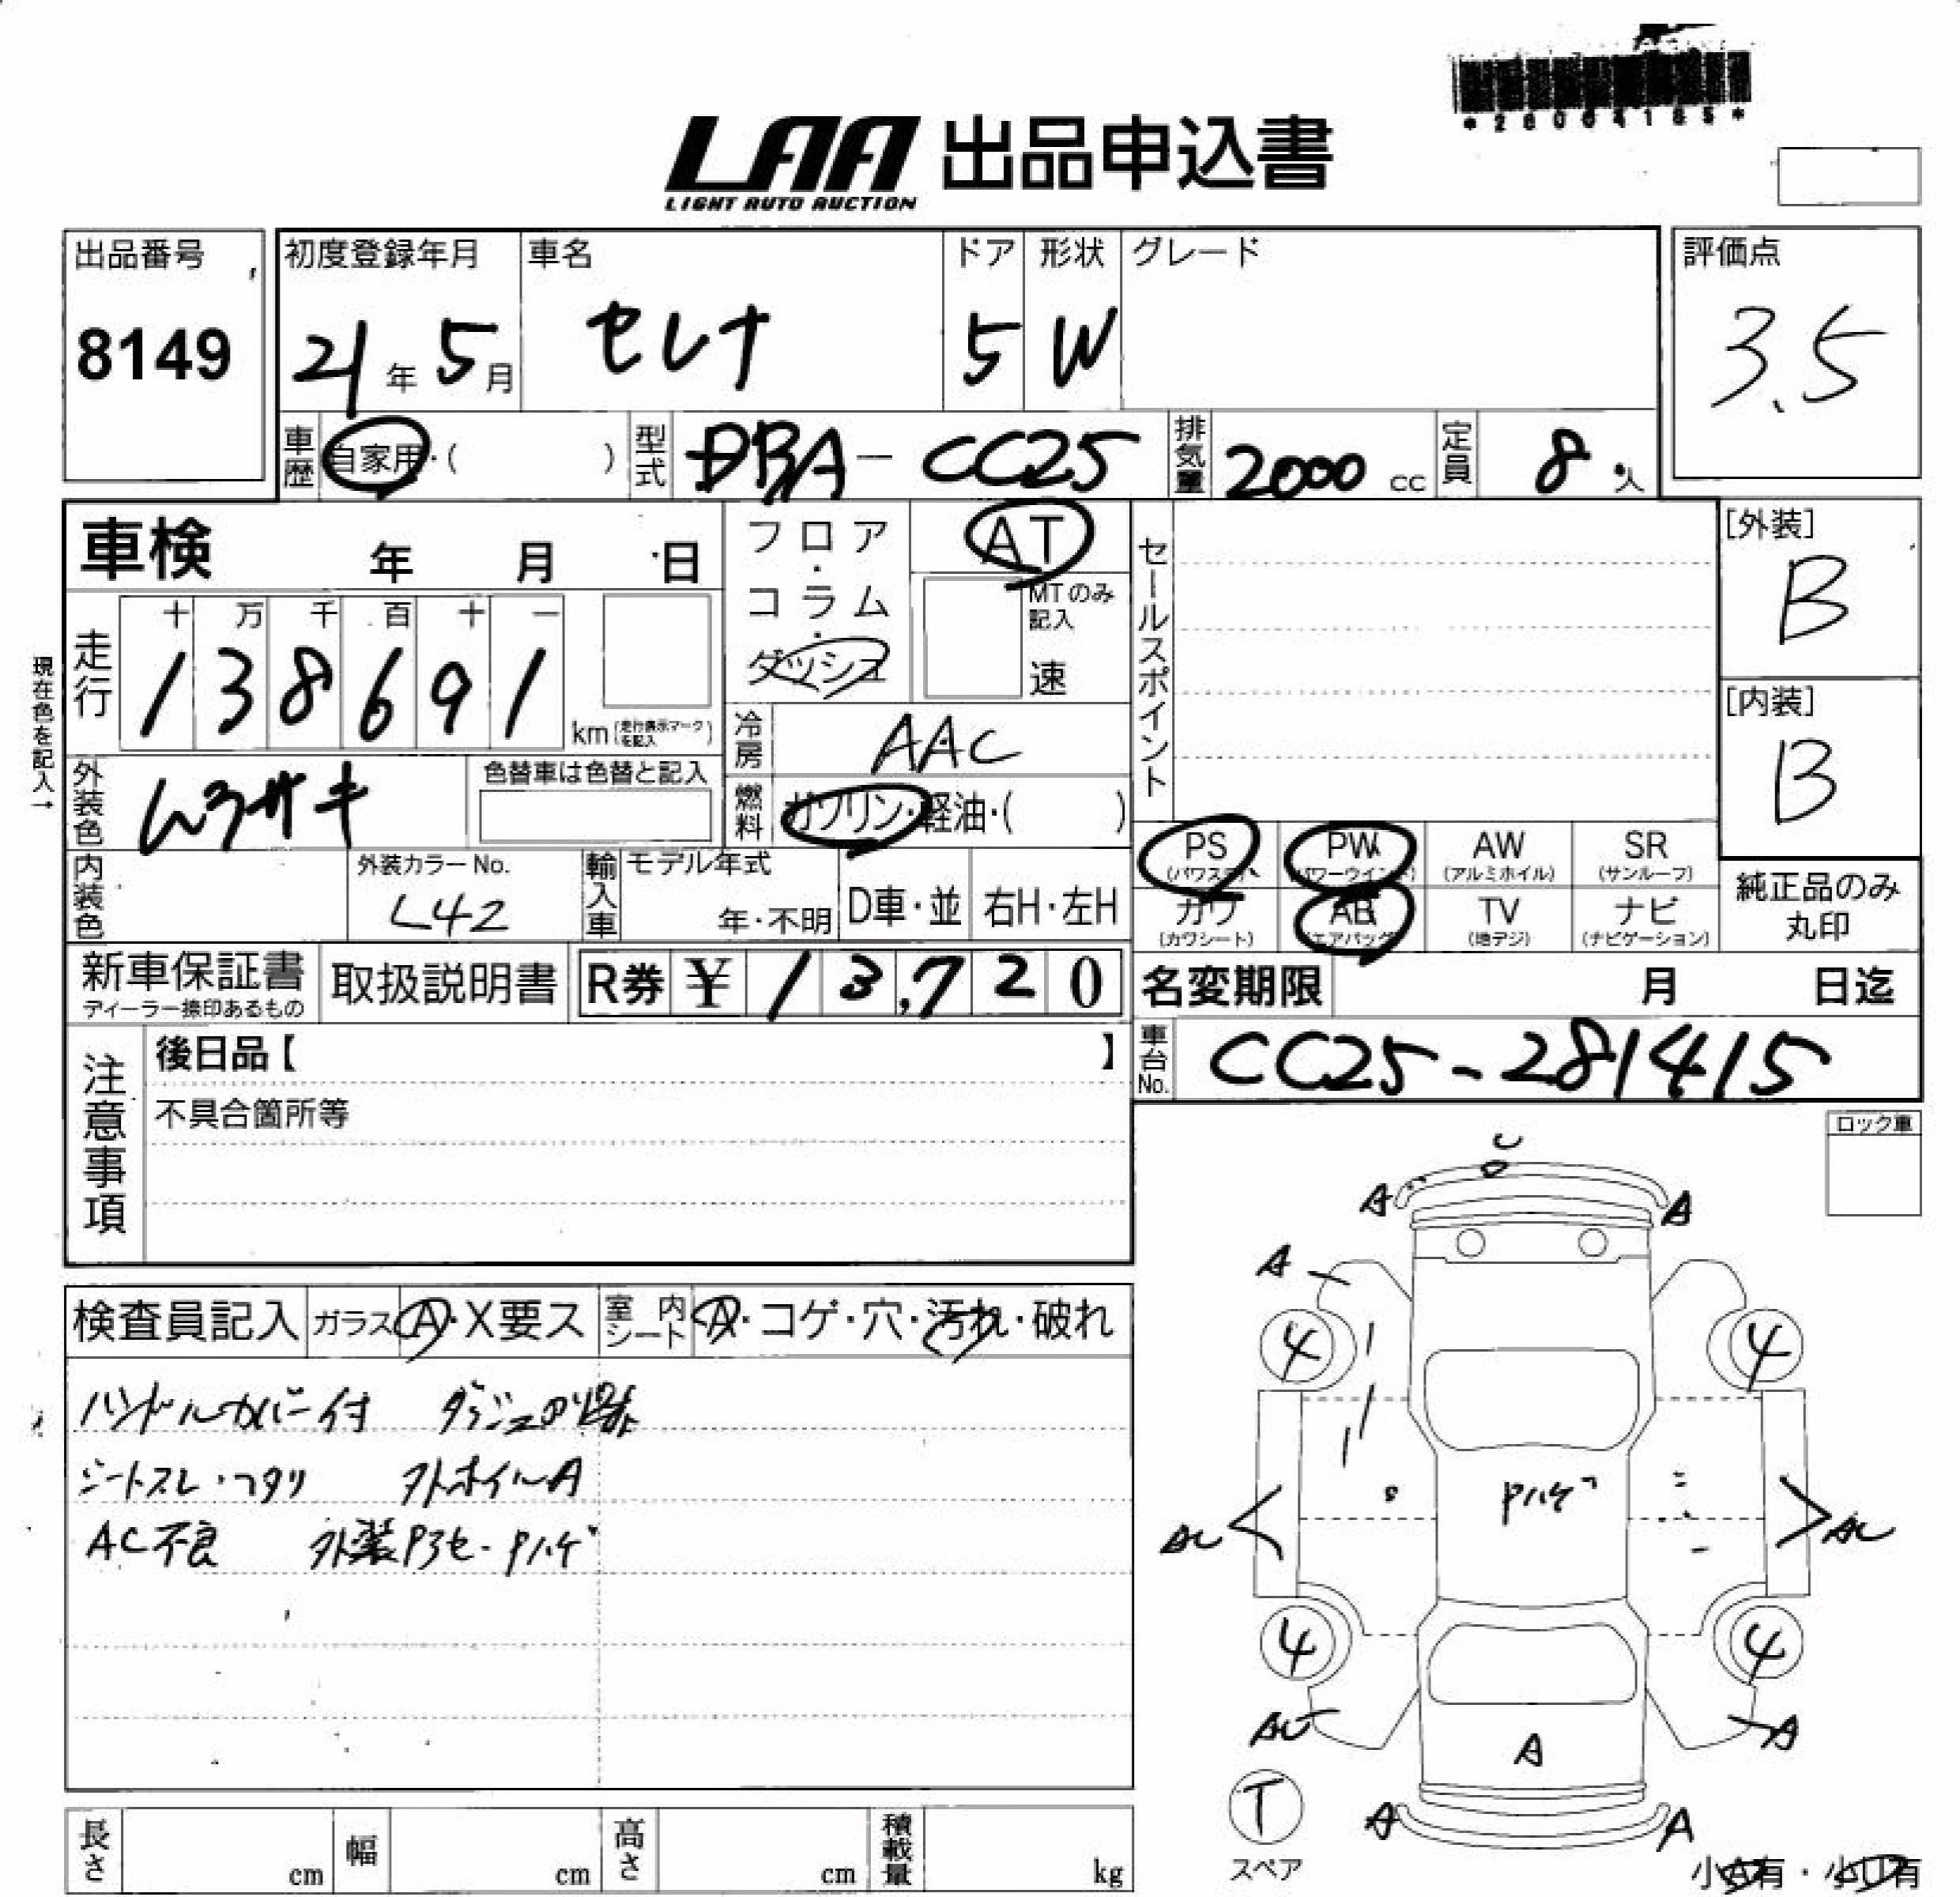 *26064185*
LAA 出品申込書
LIGHT AUTO AUCTION
出品番号
8149
初度登録年月
21年5月
車名
セレナ
ドア
5
形状
W
グレード
評価点
3.5
車歴
自家用・( )
型式
DBA-CC25
排気量
2000 cc
定員
8人
車検 年 月 日
走行
十 万 千 百 十 一
1 3 8 6 9 1
km(走行表示マークを記入)
現在色を記入→
フロア・コラム・ダッシュ
AT
MTのみ記入
速
冷房
AAC
燃料
ガソリン・軽油・( )
セールスポイント
[外装]
B
[内装]
B
外装色
ムラサキ
色替車は色替と記入
内装色
外装カラーNo.
L42
輸入車
モデル年式
年・不明
D車・並
右H・左H
PS
(パワステ)
PW
(パワーウインド)
AW
(アルミホイル)
SR
(サンルーフ)
カワ
(カワシート)
AB
(エアバッグ)
TV
(地デジ)
ナビ
(ナビゲーション)
純正品のみ
丸印
新車保証書
ディーラー捺印あるもの
取扱説明書
R券 ¥ 13,720
名変期限 月 日迄
車台No.
CC25-281415
注意事項
後日品【 】
不具合箇所等
ロック車
検査員記入
ガラス A・X要ス
室内シート A・コゲ・穴・汚れ・破れ
ハンドルカバー付 ダッシュのり跡
シートスレ・ヘタリ 外ホイルA
AC不良 外装Pヤセ・Pハゲ
U
A A
A
4 4
Pハゲ
AU AU
4 4
AU A
A
T
スペア
A A
小A有・小U有
長さ cm
幅 cm
高さ cm
積載量 kg